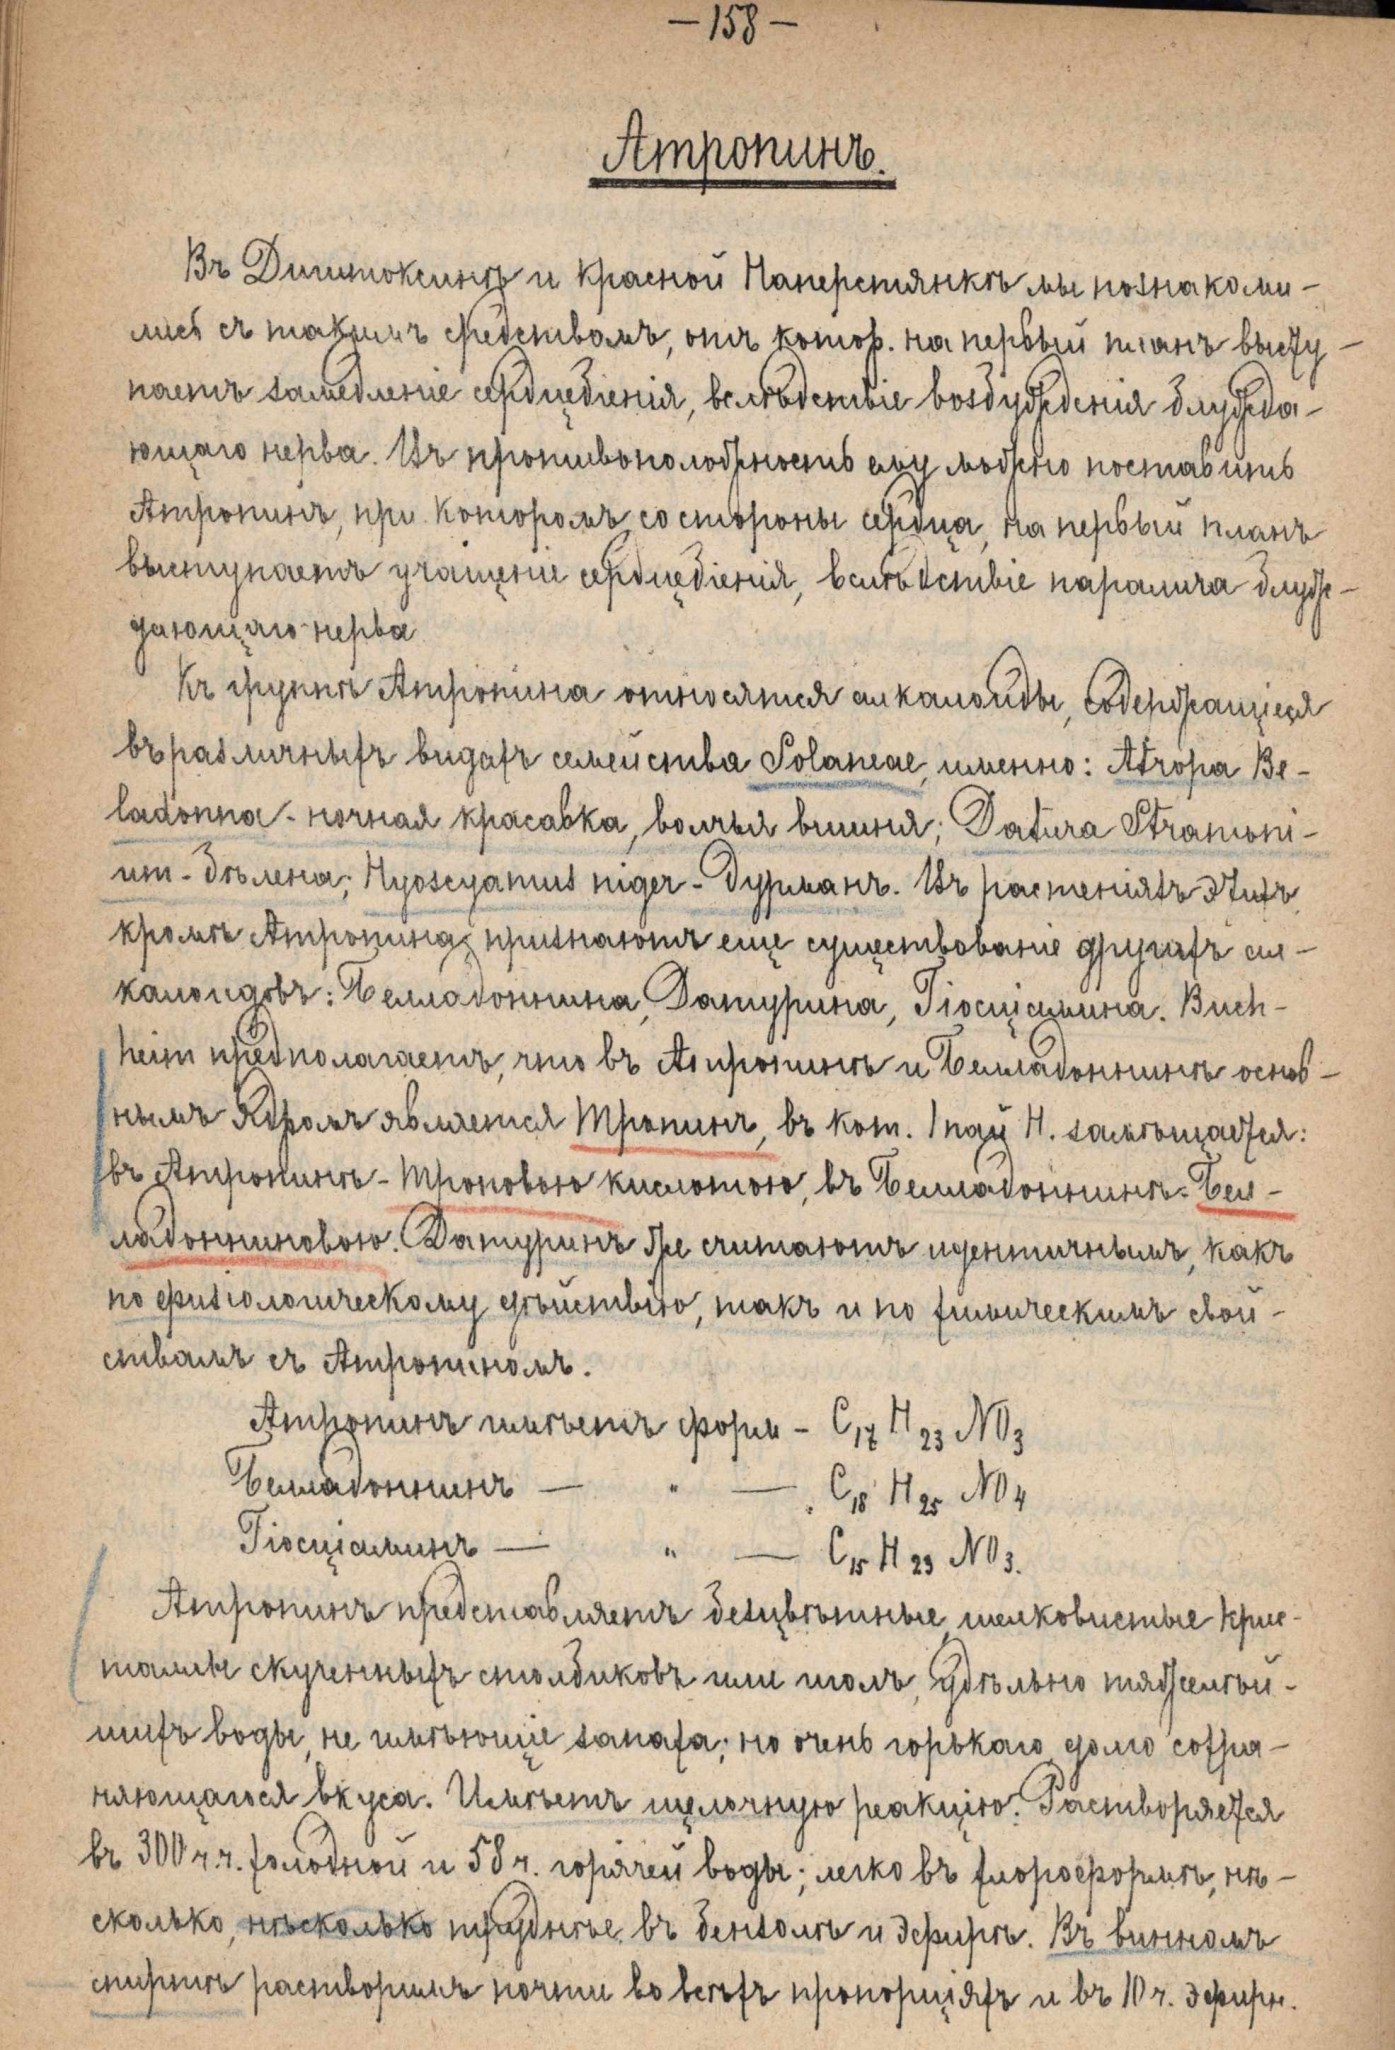 —158—
Атропинъ.
Въ Дигитоксинѣ и красной Наперстянкѣ мы познакоми-
лись съ такимъ средствомъ, отъ котор. на первый планъ высту-
паетъ замедленіе сердцебіенія, вслѣдствіе возбужденія блужда-
ющаго нерва. Въ противоположность ему можно поставить
Атропинъ, при которомъ, со стороны сердца, на первый планъ
выступаетъ учащеніе сердцебіенія, вслѣдствіе паралича блуж-
дающаго нерва
Къ группѣ Атропина относятся алкалоиды, содержащіеся
въ различныхъ видахъ семейства Solaneae, именно: Atropa Be-
ladonna - ночная красавка, волчья вишня; Datura Stramoni-
um - бѣлена; Hyoscyamus niger - Дурманъ. Въ растеніяхъ этихъ
кромѣ Атропина, признаютъ еще существованіе другихъ ал-
калоидовъ: Белладоннина, Датурина, Гіосціамина. Buch-
heim предполагаетъ, что въ Атропинѣ и Белладоннинѣ основ-
нымъ ядромъ является Тропинъ, въ кот. 1 пай Н. замѣщается:
въ Атропинѣ - Троповою кислотою, въ Белладоннинѣ - Бел-
ладонниновою. Датуринъ же считаютъ идентичнымъ, какъ
по физіологическому дѣйствію, такъ и по химическимъ свой-
ствамъ съ Атропиномъ.
Атропинъ имѣетъ форм - C17 H23 NO3
Белладоннинъ — " — C18 H25 NO4
Гіосціаминъ — " — C15 H23 NO3.
Атропинъ представляетъ безцвѣтные, шелковистые крис-
таллы скученныхъ столбиковъ или иглъ, удѣльно тяжелѣй-
шихъ воды, не имѣющіе запаха; но очень горькаго, долго сохра-
няющагося вкуса. Имѣетъ щелочную реакцію. Растворяется
въ 300 ч.ч. холодной и 58 ч. горячей воды; легко въ хлороформѣ, нѣ-
сколько, нѣсколько труднѣе въ бензолѣ и эфирѣ. Въ винномъ
спиртѣ растворимъ почти во всѣхъ пропорціяхъ и въ 10 ч. эфирн.